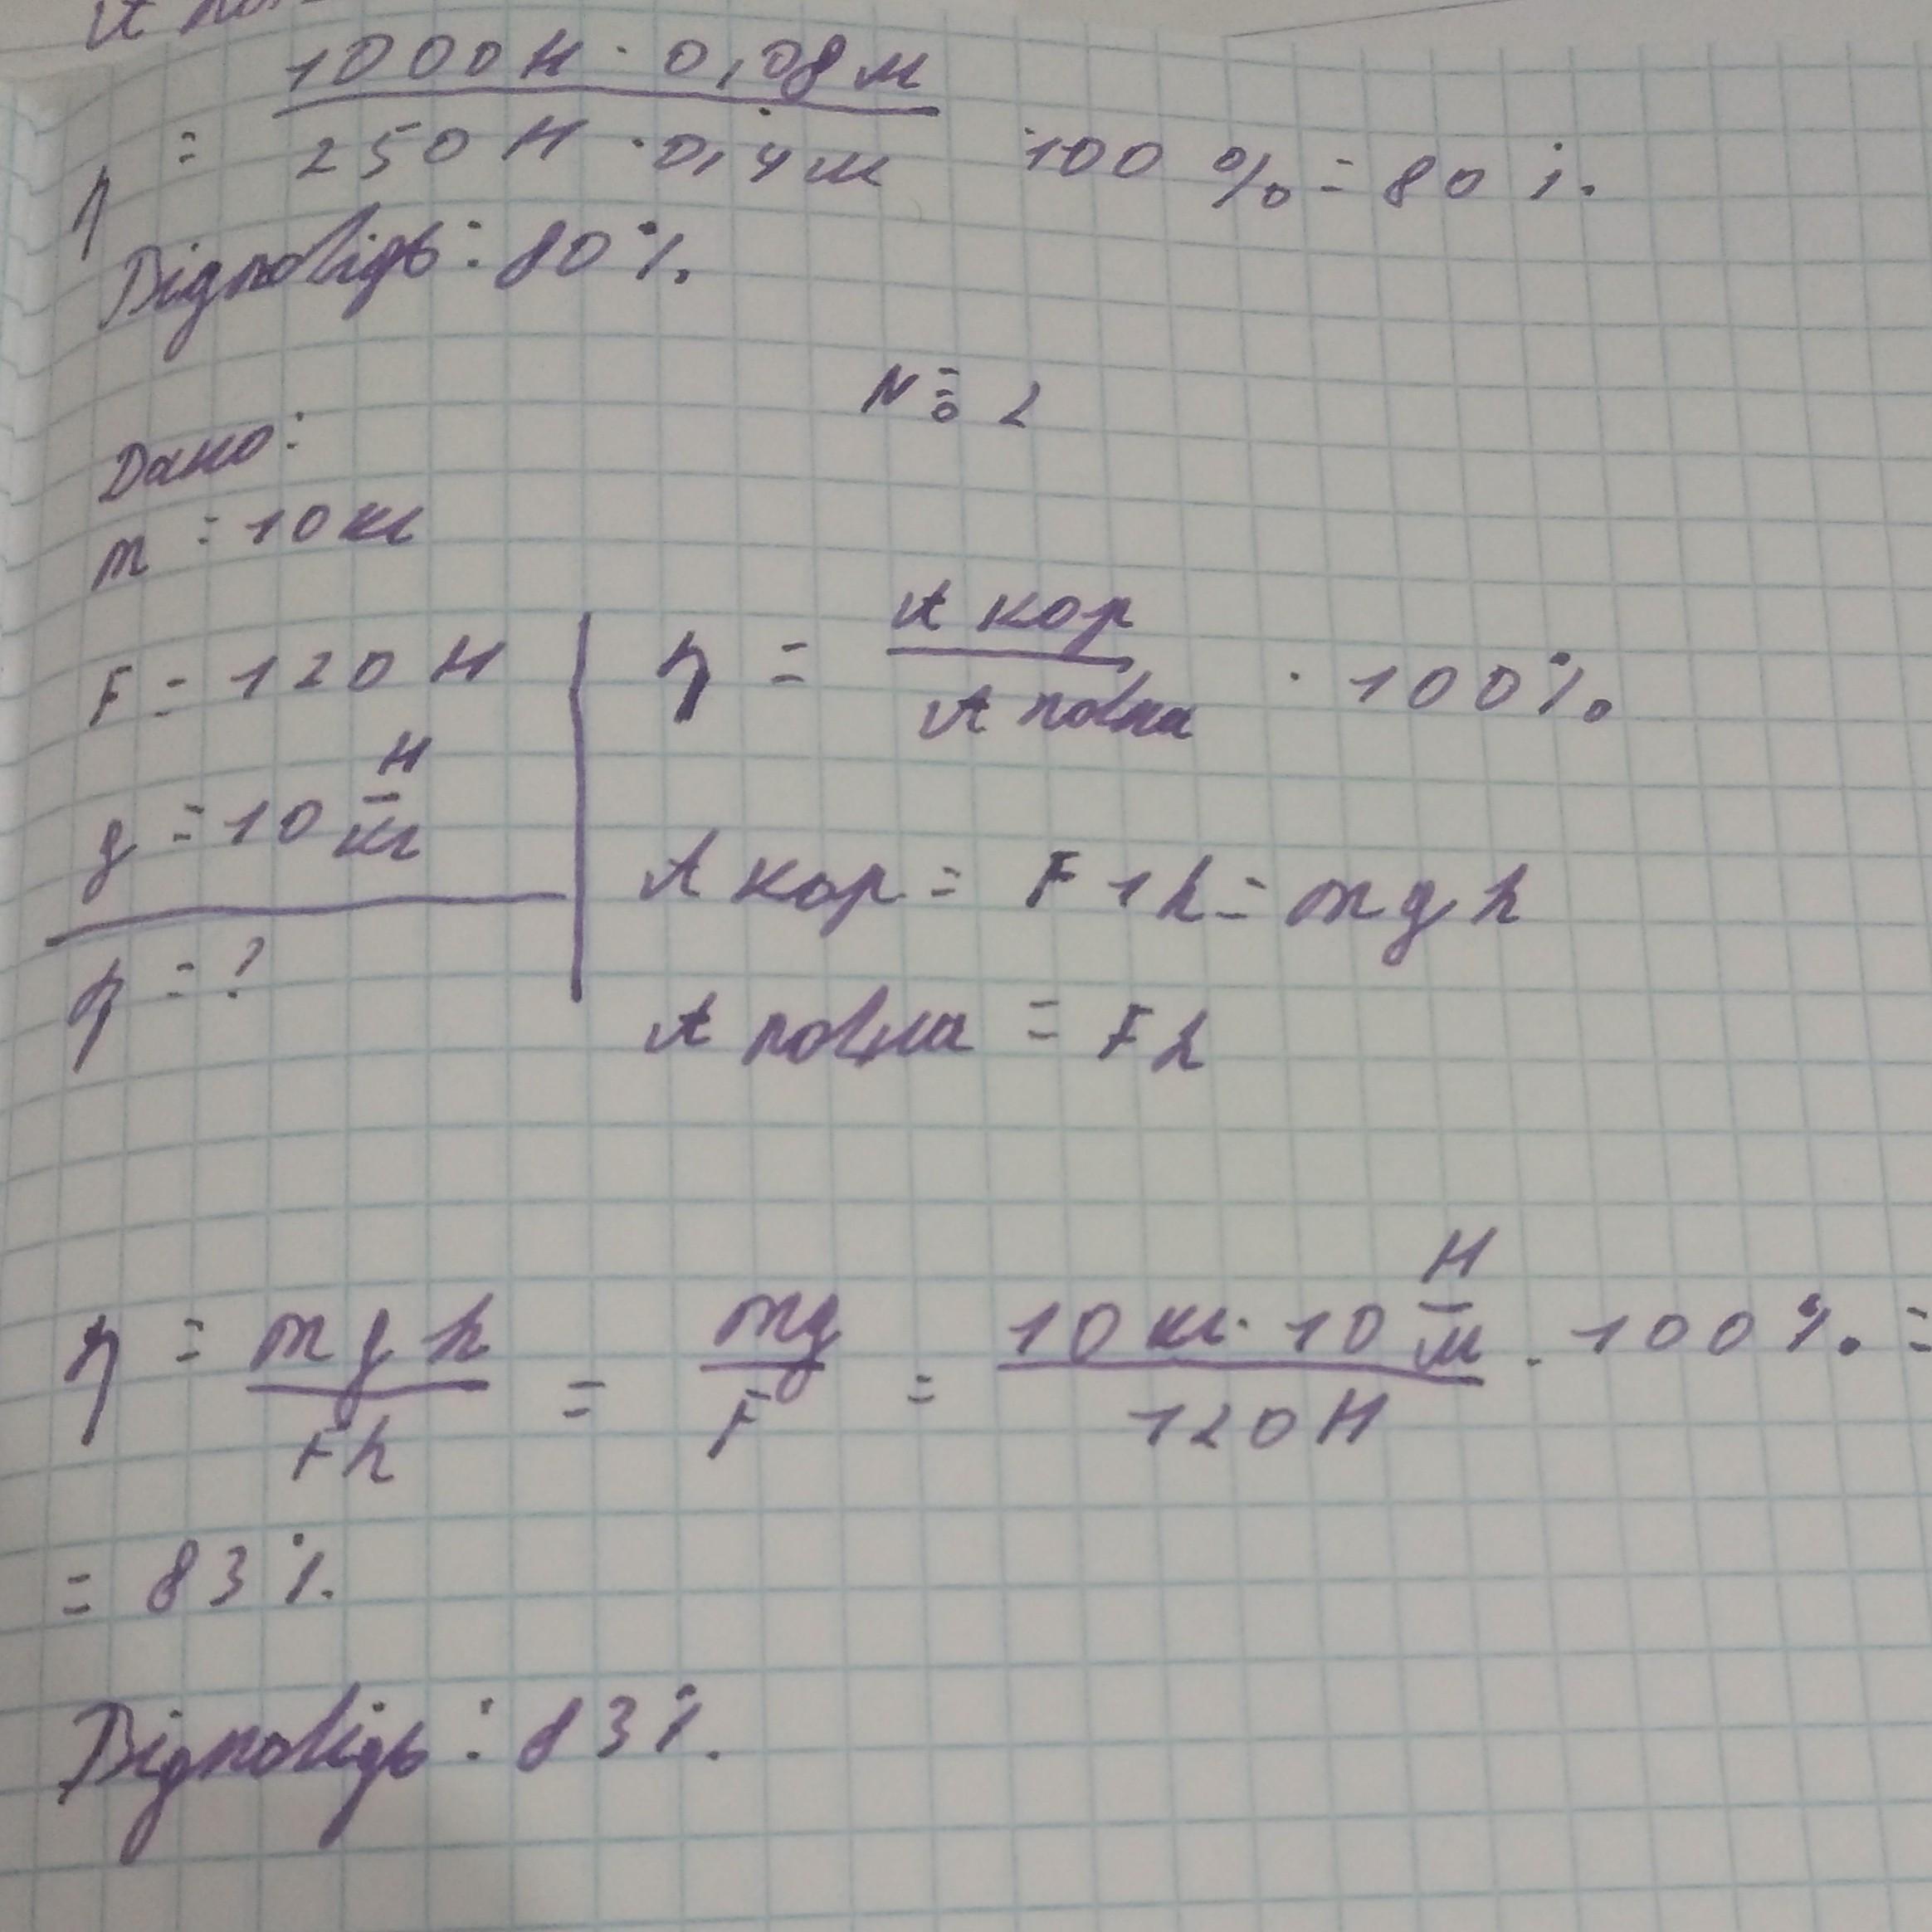 η = 1000 Н · 0,08 м / 250 Н · 0,4 м · 100 % = 80 %.
Відповідь: 80 %.
№ 2
Дано:
m = 10 кг
F = 120 Н
g = 10 Н/кг
η = ?
η = A кор / A повна · 100 %
A кор = F1h = mgh
A повна = Fh
η = mgh / Fh = mg / F = 10 кг · 10 Н/м / 120 Н · 100 % =
= 83 %.
Відповідь: 83 %.